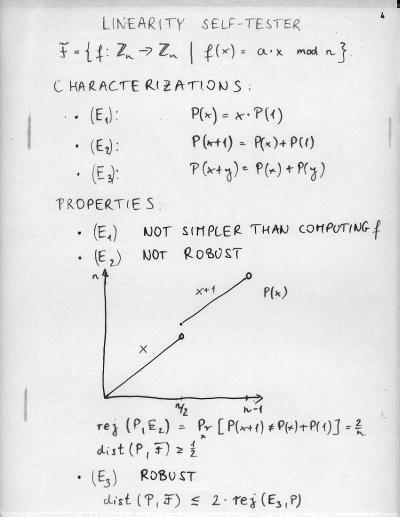 4
LINEARITY SELF-TESTER
F̃ = { f: ℤn → ℤn | f(x) = a·x mod n }.
CHARACTERIZATIONS:
• (E₁): P(x) = x·P(1)
• (E₂): P(x+1) = P(x)+P(1)
• (E₃): P(x+y) = P(x)+P(y)
PROPERTIES:
• (E₁) NOT SIMPLER THAN COMPUTING f
• (E₂) NOT ROBUST
n
x+1
P(x)
x
n/2 n-1
rej (P, E₂) = Pr_x [P(x+1) ≠ P(x)+P(1)] = 2/n
dist (P, F̃) ≥ 1/2
• (E₃) ROBUST
dist (P, F̃) ≤ 2·rej (E₃, P)